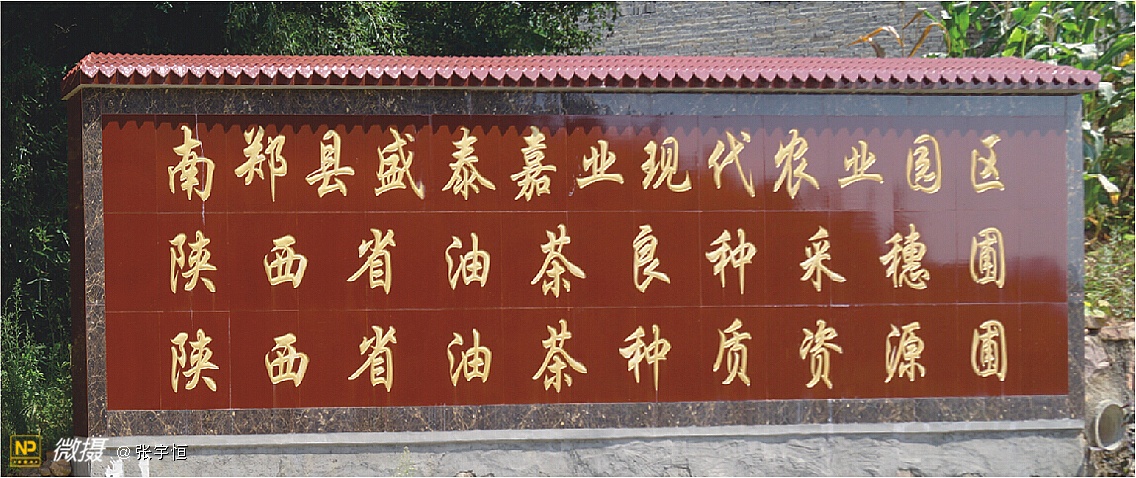 南郑县盛泰嘉业现代农业园区
陕西省油茶良种采穗圃
陕西省油茶种质资源圃
NP 微摄 @张宇恒